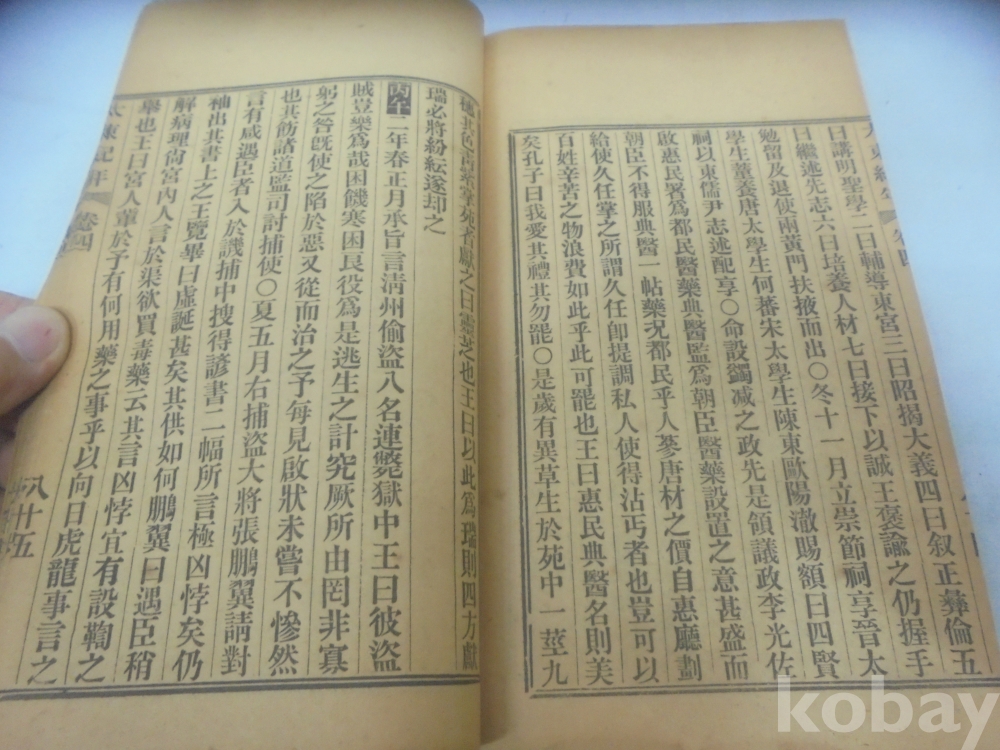 曰講明聖學二曰輔導東宮三曰昭揭大義四曰叙正彝倫五
曰繼述先志六曰培養人材七曰接下以誠王褒諭之仍握手
勉留及退使兩黃門扶掖而出○冬十一月立崇節祠享晉太
學生董養唐太學生何蕃宋太學生陳東歐陽澈賜額曰四賢
祠以東儒尹志述配享○命設蠲减之政先是領議政李光佐
啟惠民署爲都民醫藥典醫監爲朝臣醫藥設置之意甚盛而
朝臣不得服典醫一帖藥况都民乎人蔘唐材之價自惠廳劃
給使久任掌之所謂久任卽提調私人使得沾丐者也豈可以
百姓辛苦之物浪費如此乎此可罷也王曰惠民典醫名則美
矣孔子曰我愛其禮其勿罷○是歲有異草生於苑中一莖九
穗其色掌苑者獻之曰靈芝也王曰以此爲瑞則四方獻
瑞必將紛紜遂却之
丙午二年春正月承旨言淸州偷盜八名連斃獄中王曰彼盜
賊豈樂爲哉困饑寒困民役爲是逃生之計究厥所由罔非寡
躬之咎旣使之陷於惡又從而治之予每見啟狀未嘗不慘然
也其飭諸道監司討捕使○夏五月右捕盜大將張鵬翼請對
言有咸遇臣者入於譏捕中搜得諺書二幅所言極凶悖矣仍
袖出其書上之王覽畢曰虛誕甚矣其供如何鵬翼曰遇臣稍
解病理尙宮內人言於渠欲買毒藥云其言凶悖宜有設鞫之
舉也王曰宮人輩於予有何用藥之事乎以向日虎龍事言之
卷四
八廿五
kobay